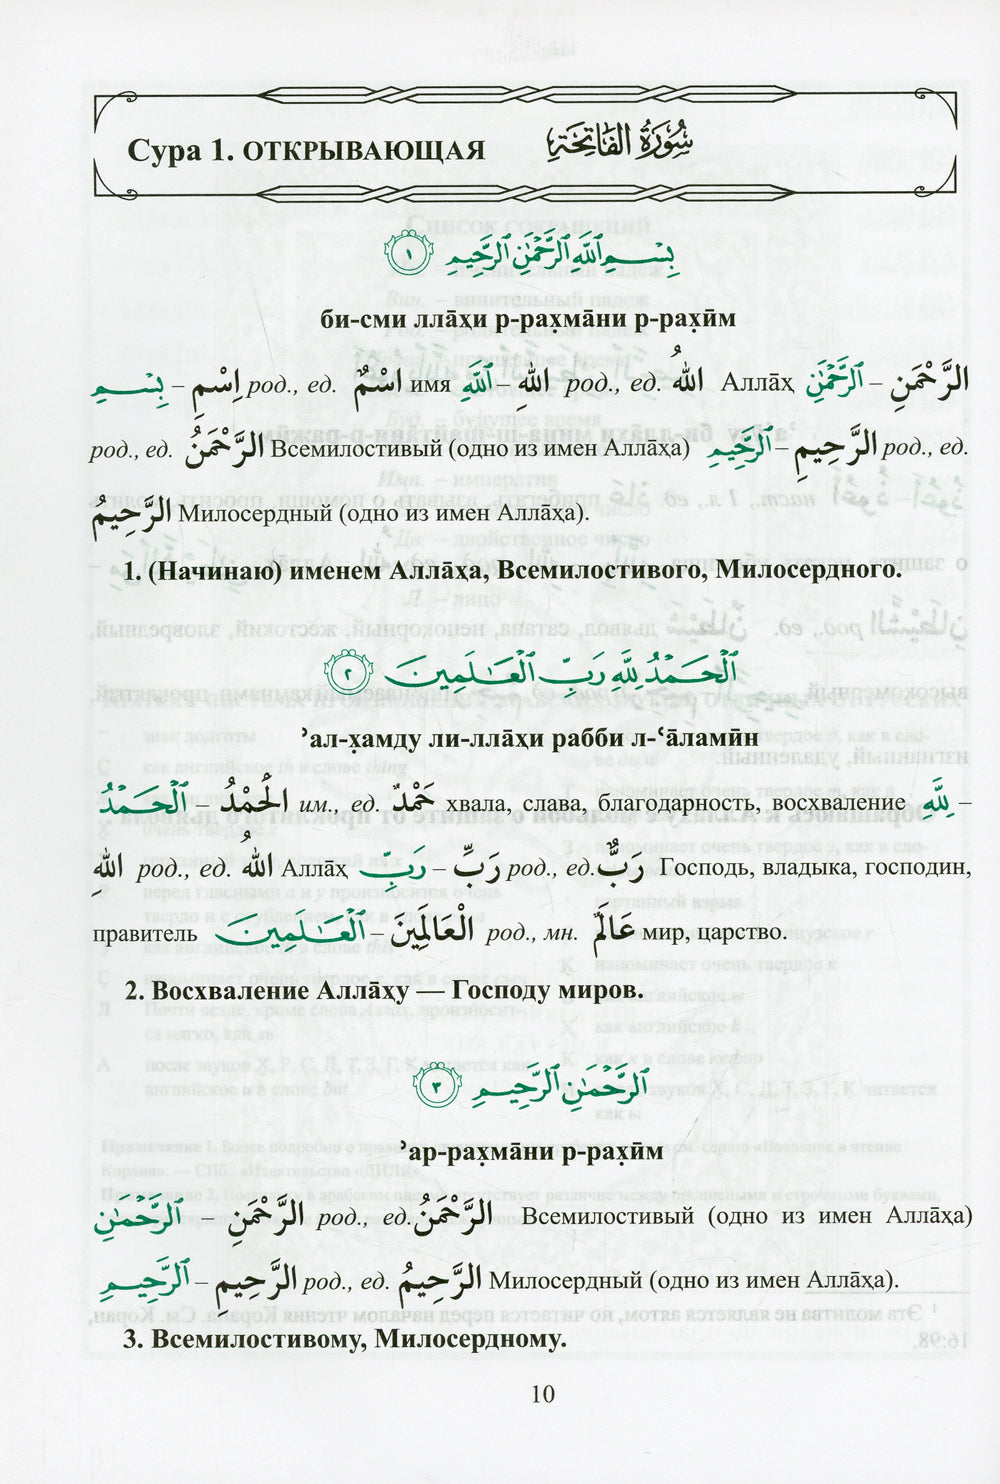 Сура 1. ОТКРЫВАЮЩАЯ سُورَةُ الفَاتِحَةِ
بِسْمِ ٱللَّهِ ٱلرَّحْمَٰنِ ٱلرَّحِيمِ ١
би-сми лла̄х̣и р-рах̣ма̄ни р-рах̣ӣм
بِسْمِ – اِسْمِ род., ед. اسْمٌ имя ٱللَّهِ – اللهِ род., ед. اللهُ Алла̄х̣ ٱلرَّحْمَٰنِ – الرَّحْمَنِ
род., ед. الرَّحْمَنُ Всемилостивый (одно из имен Алла̄х̣а) ٱلرَّحِيمِ – الرَّحِيمِ род., ед.
الرَّحِيمُ Милосердный (одно из имен Алла̄х̣а).
1. (Начинаю) именем Алла̄х̣а, Всемилостивого, Милосердного.
ٱلْحَمْدُ لِلَّهِ رَبِّ ٱلْعَٰلَمِينَ ٢
ʾал-х̣амду ли-лла̄х̣и рабби л-ʿа̄ламӣн
ٱلْحَمْدُ – الْحَمْدُ им., ед. حَمْدٌ хвала, слава, благодарность, восхваление لِلَّهِ –
اللهِ род., ед. اللهُ Алла̄х̣ رَبِّ – رَبِّ род., ед. رَبٌّ Господь, владыка, господин,
правитель ٱلْعَٰلَمِينَ – الْعَالَمِينَ род., мн. عَالَمٌ мир, царство.
2. Восхваление Алла̄х̣у — Господу миров.
ٱلرَّحْمَٰنِ ٱلرَّحِيمِ ٣
ʾар-рах̣ма̄ни р-рах̣ӣм
ٱلرَّحْمَٰنِ – الرَّحْمَنِ род., ед. الرَّحْمَنُ Всемилостивый (одно из имен Алла̄х̣а)
ٱلرَّحِيمِ – الرَّحِيمِ род., ед. الرَّحِيمُ Милосердный (одно из имен Алла̄х̣а).
3. Всемилостивому, Милосердному.
10